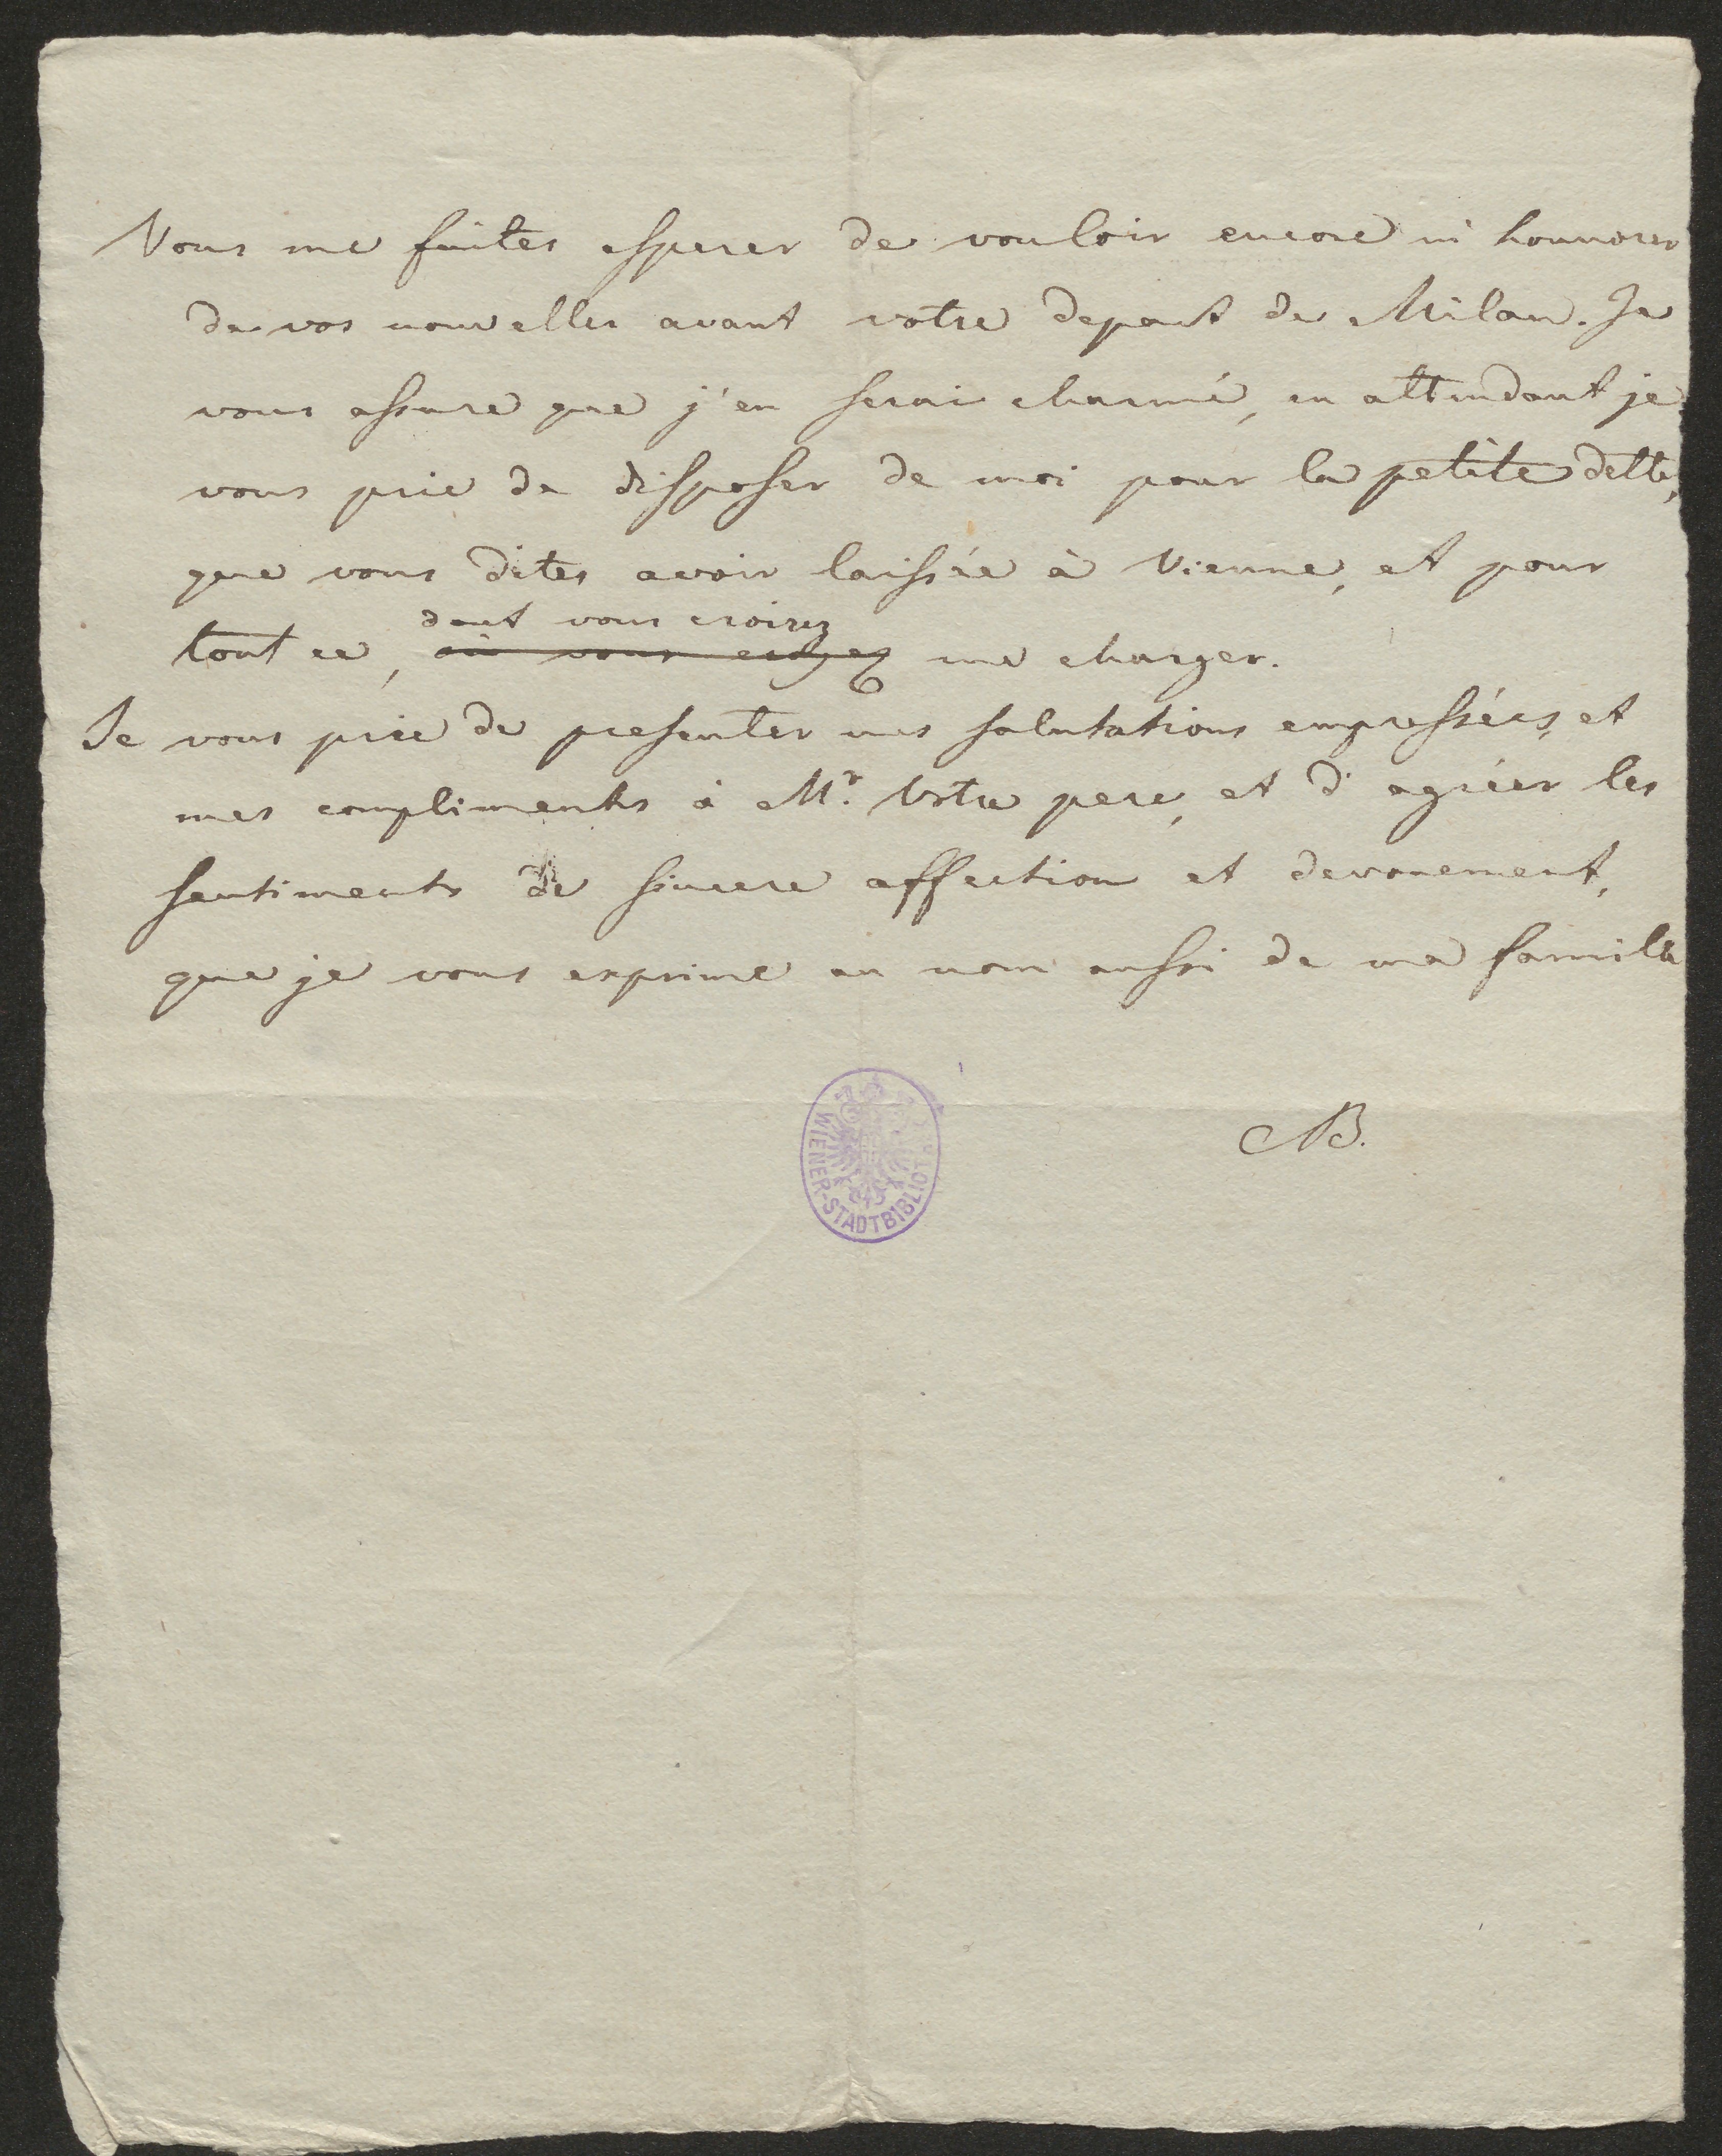 Vous me faites esperer de vouloir encore m'honnorer
de vos nouvelles avant votre depart de Milan. Je
vous assure que j'en serai charmé, en attendant je
vous prie de disposer de moi pour la petite dette,
que vous dites avoir laissée à Vienne, et pour
dont vous croirez
tout ce, où vous me charger.
Je vous prie de presenter mes salutations empressées, et
mes compliments à Mr. Votre pere, et d'agréer les
sentiments de sincere affection et devouement,
que je vous exprime au nom aussi de ma famille
MB.
WIENER-STADTBIBLIOT